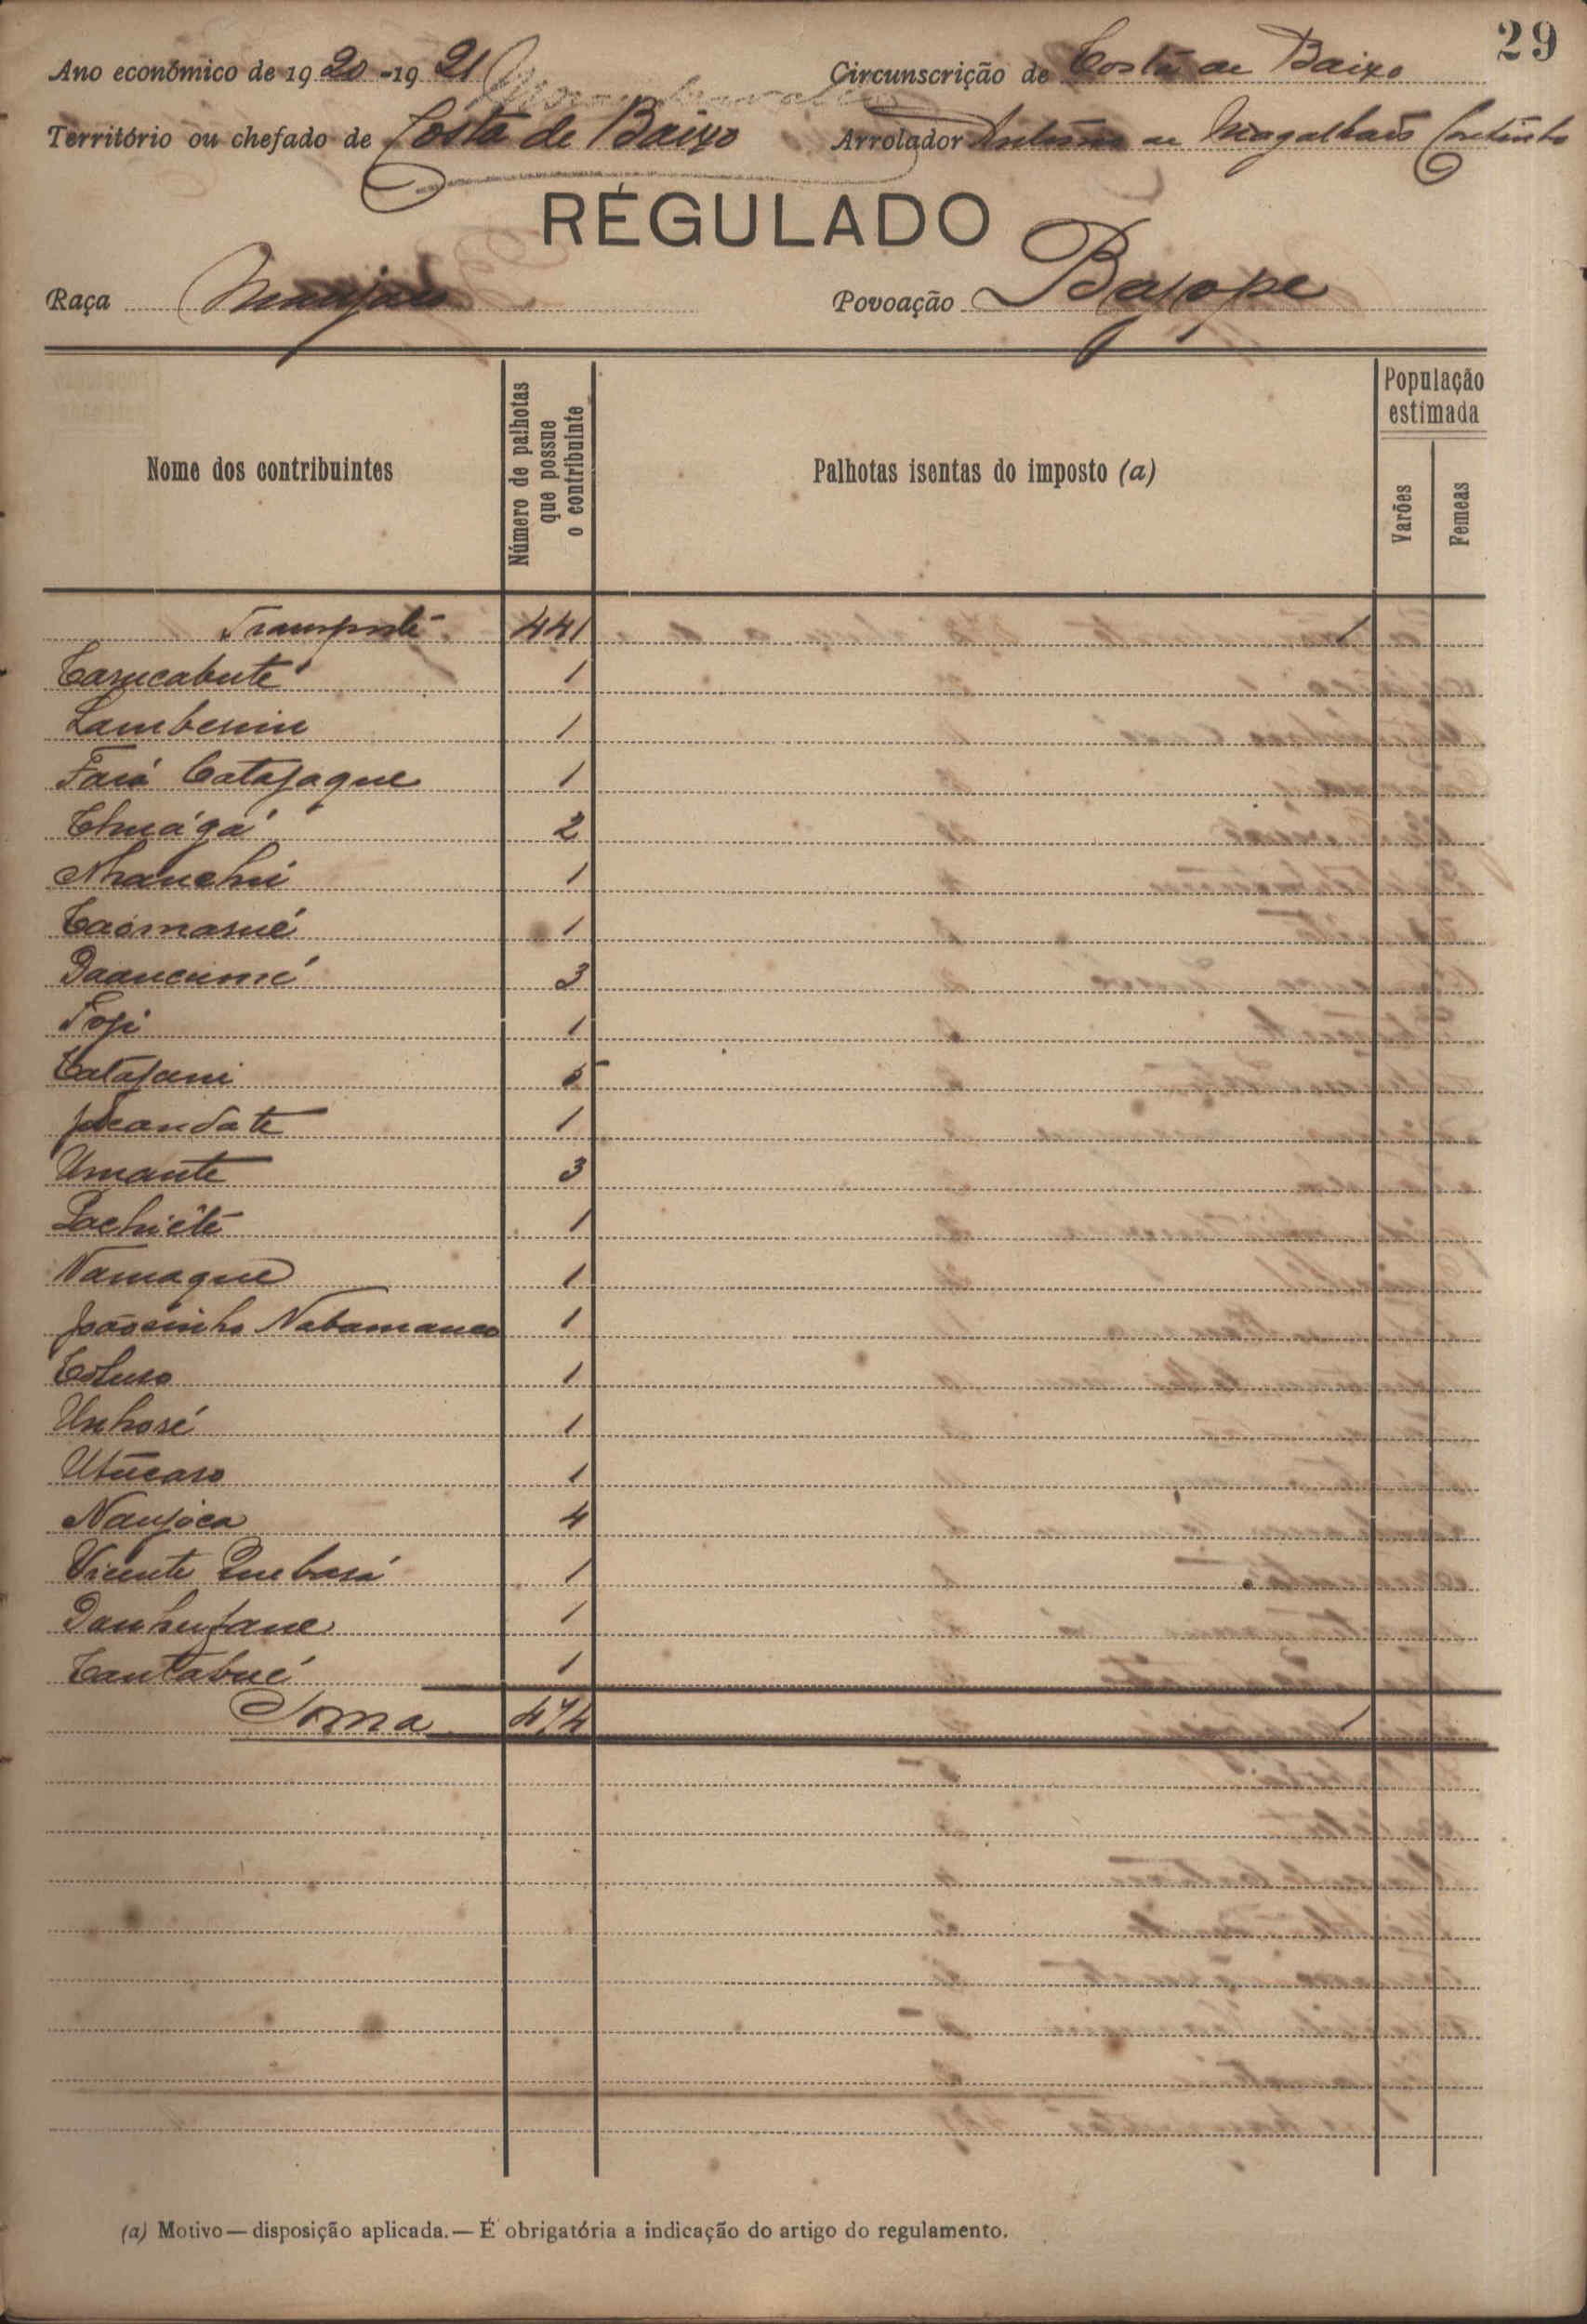 29
Ano económico de 1920-1921
Circunscrição de Costa de Baixo
Território ou chefado de Costa de Baixo
Arrolador António de Magalhães Coutinho
RÉGULADO
Raça Manjaco
Povoação Bajope
Nome dos contribuintes
Número de palhotas que possue o contribuinte
Palhotas isentas do imposto (a)
População estimada
Varões
Femeas
Transporte 441 1
Carucabute 1
Lambenin 1
Fará Catajaque 1
2
Nhanchú 1
Caomasué 1
3
Foji 1
Catafani 5
1
Umante 3
Pachiété 1
Namaque 1
Joãosinho 1
1
Unhoré 1
Utúcaro 1
Naujoca 4
Vicente Quebasá 1
1
Cantabué 1
Soma 474 1
(a) Motivo — disposição aplicada. — É obrigatória a indicação do artigo do regulamento.